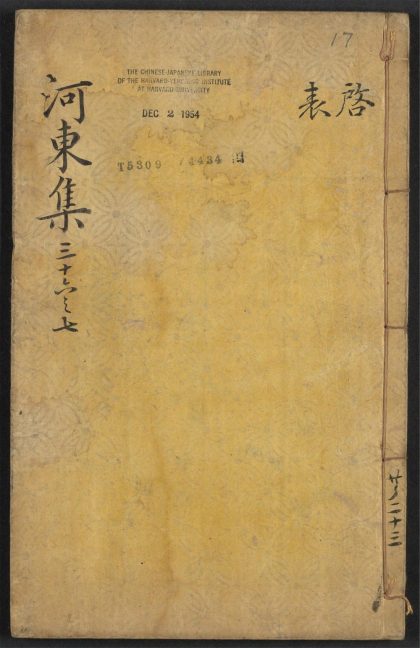 17
THE CHINESE-JAPANESE LIBRARY
OF THE HARVARD-YENCHING INSTITUTE
AT HARVARD UNIVERSITY
DEC 2 1954
T5309 /4434
啓表
河東集 三十六之七
二十三